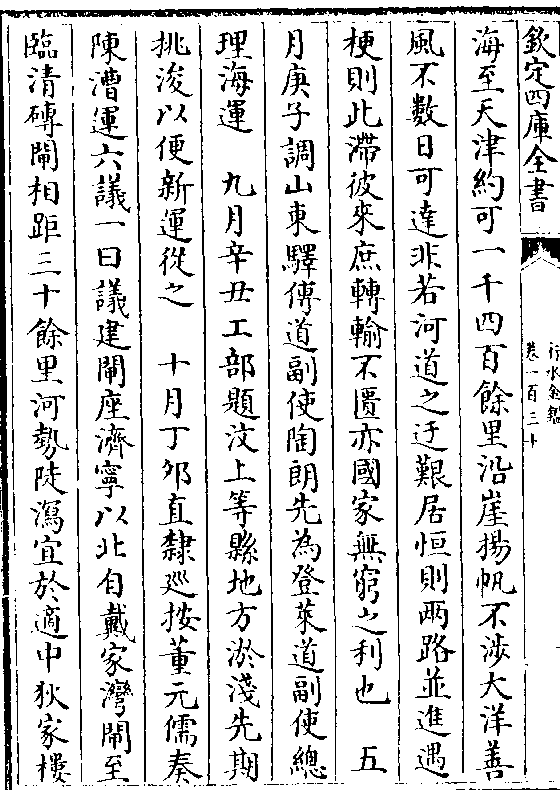 欽定四庫全書
行水金鑑
卷一百三十
海至天津約可一千四百餘里沿崖揚帆不渉大洋善
風不數日可達非若河道之迂艱居恒則兩路並進遇
梗則此滯彼來庶轉輸不匱亦國家無窮之利也　五
月庚子調山東驛傳道副使陶朗先為登萊道副使總
理海運　九月辛丑工部題汶上等縣地方淤淺先期
挑浚以便新運從之　十月丁夘直隸廵按董元儒奏
陳漕運六議一曰議建閘座濟寧以北自戴家灣閘至
臨清磚閘相距三十餘里河勢陡瀉宜於適中狄家樓